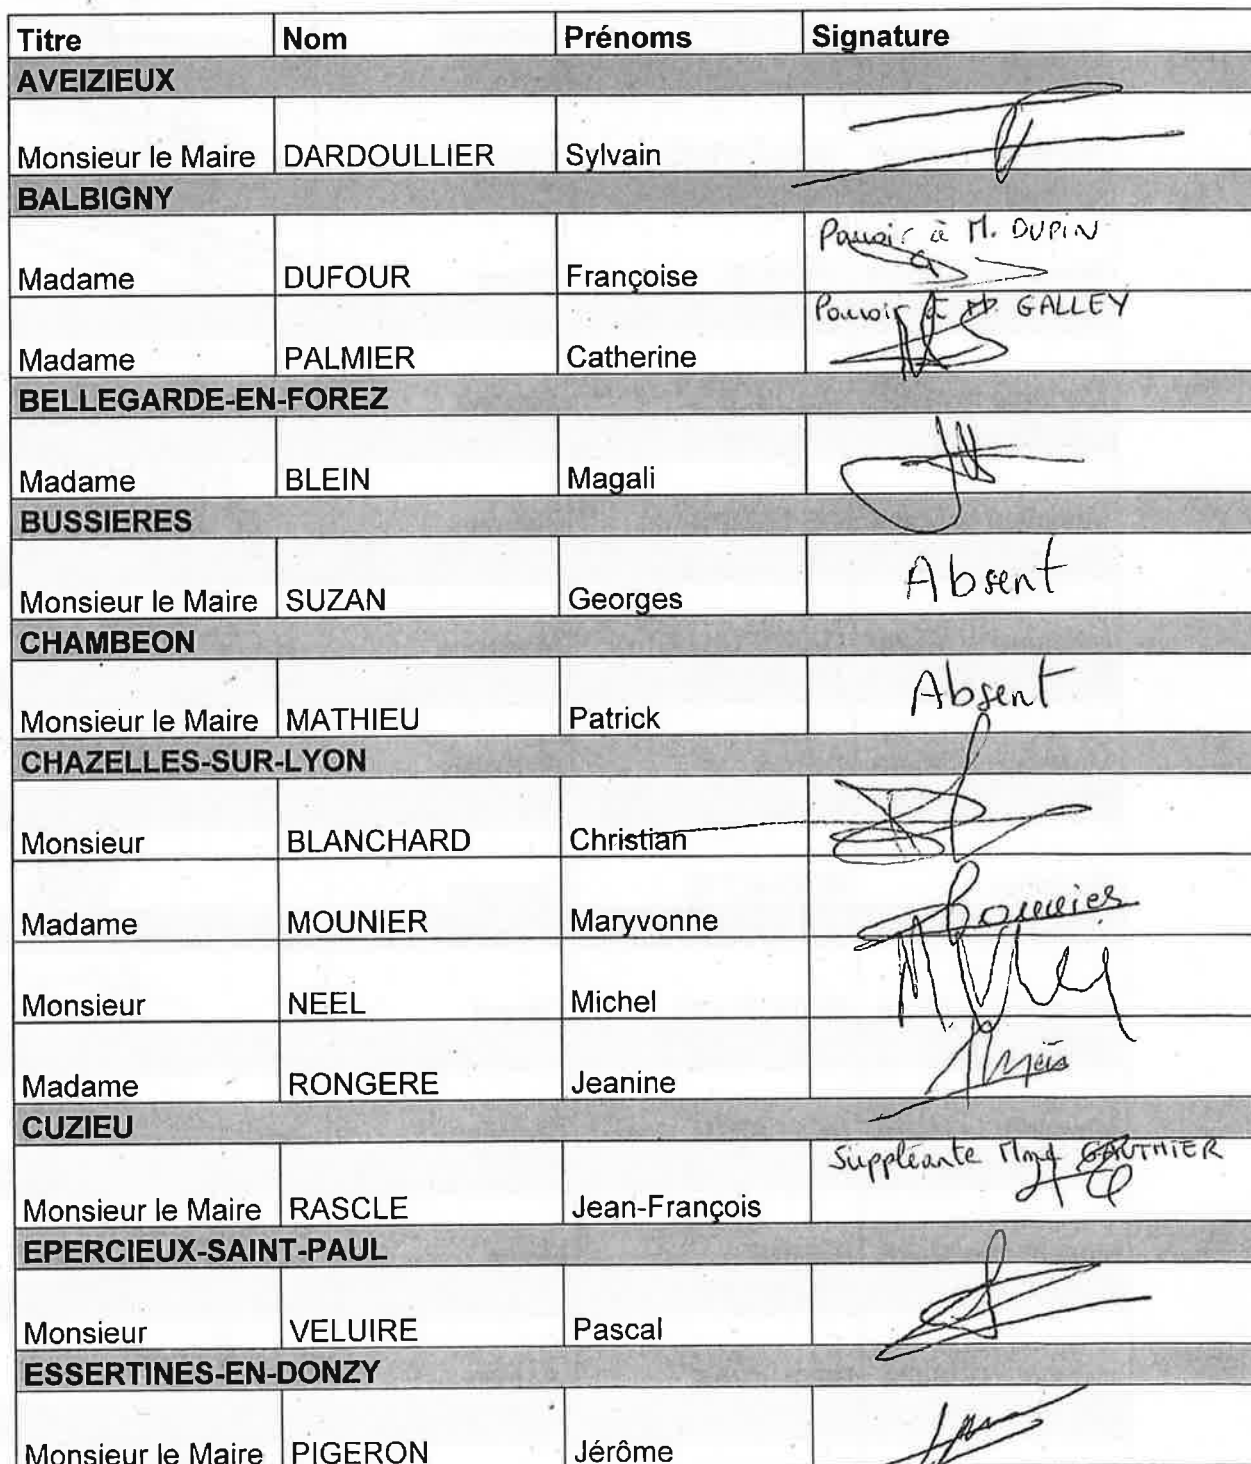 Titre Nom Prénoms Signature
AVEIZIEUX
Monsieur le Maire DARDOULLIER Sylvain
BALBIGNY
Pouvoir à M. DUPIN
Madame DUFOUR Françoise
Pouvoir à GALLEY
Madame PALMIER Catherine
BELLEGARDE-EN-FOREZ
Madame BLEIN Magali
BUSSIERES
Monsieur le Maire SUZAN Georges Absent
CHAMBEON
Monsieur le Maire MATHIEU Patrick Absent
CHAZELLES-SUR-LYON
Monsieur BLANCHARD Christian
Madame MOUNIER Maryvonne
Monsieur NEEL Michel
Madame RONGERE Jeanine
CUZIEU
Suppléante Mme GAUTHIER
Monsieur le Maire RASCLE Jean-François
EPERCIEUX-SAINT-PAUL
Monsieur VELUIRE Pascal
ESSERTINES-EN-DONZY
Monsieur le Maire PIGERON Jérôme